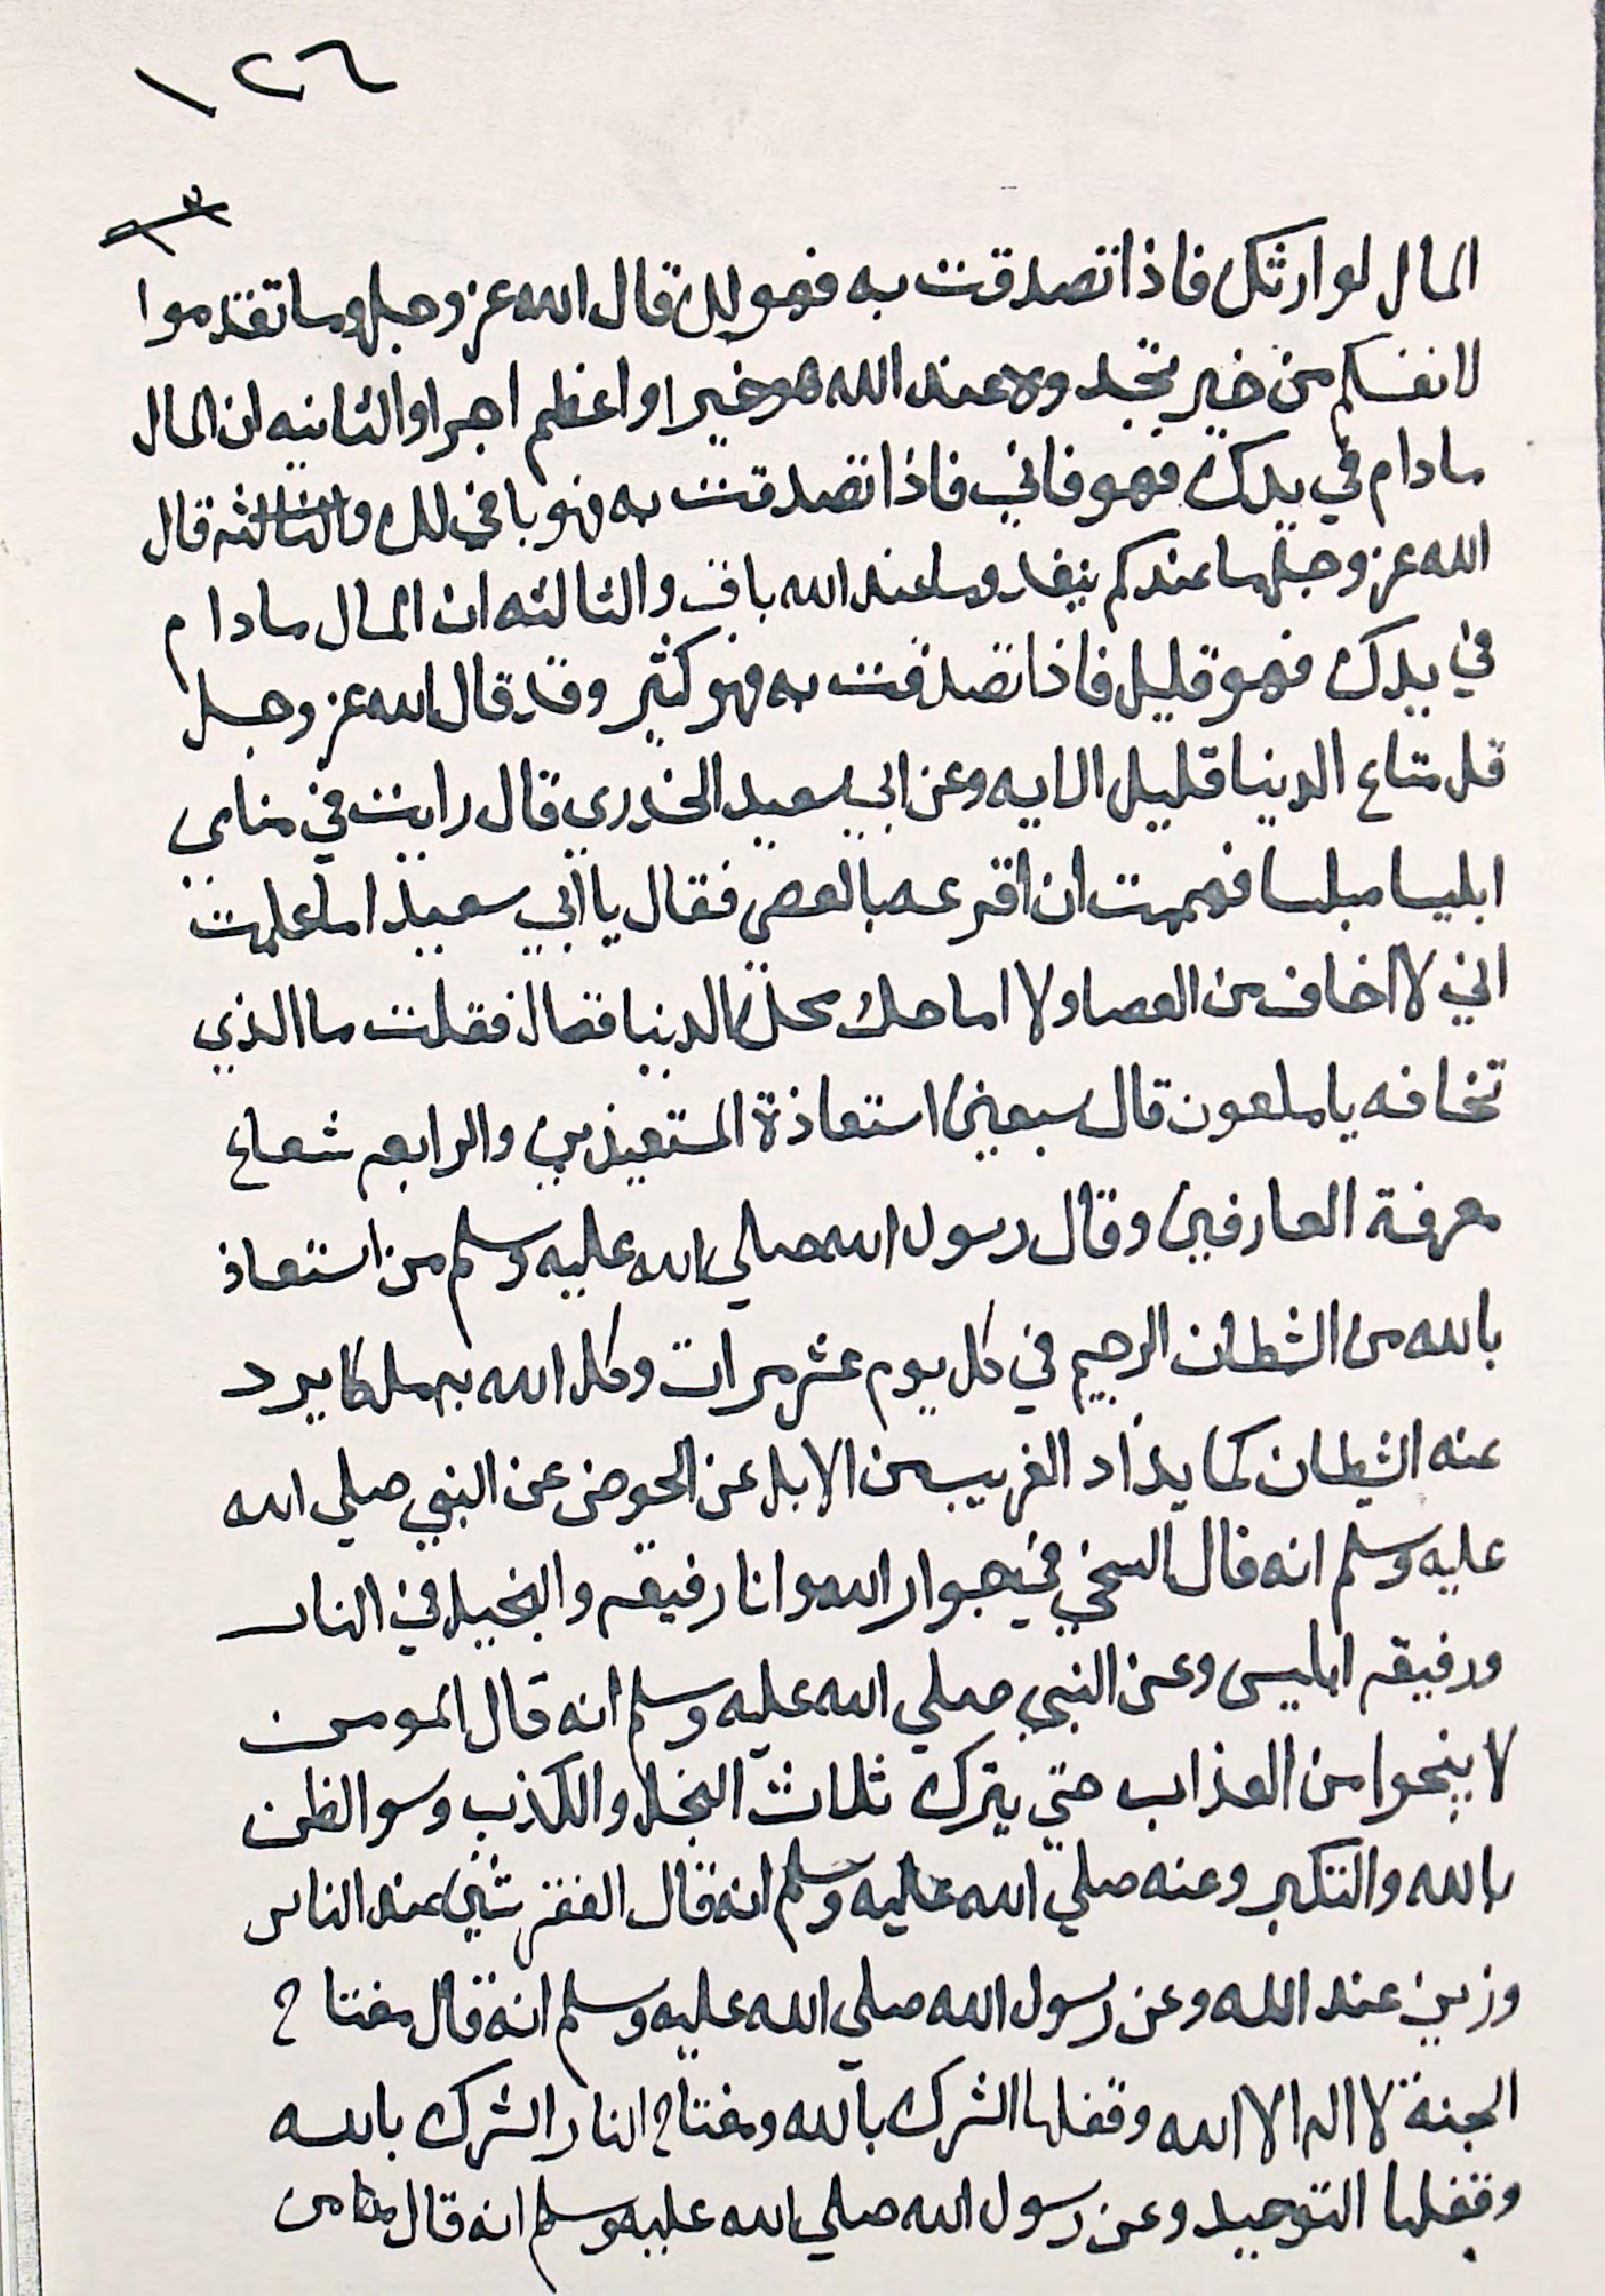 ١٢٦
المال لوارثك فاذا تصدقت به فهو لك قال الله عز وجل وما تقدموا
لانفسكم من خير تجدوه عند الله هو خيرا واعظم اجرا والثانيه ان المال
مادام في يدك فهو فاني فاذا تصدقت به فهو باقي لك والثالثه قال
الله عز وجل ما عندكم ينفد وما عند الله باق والثالثه ان المال مادام
في يدك فهو قليل فاذا تصدقت به فهو كثير وقد قال الله عز وجل
قل متاع الدنيا قليل الايه وعن ابي سعيد الخدري قال رايت في منامي
ابليسا مبلسا فهممت ان اقرعه بالعصى فقال يا ابي سعيد اما علمت
اني لا اخاف من العصا ولا الدنيا فقال فقلت ما الذي
تخافه يا ملعون قال سبعين استعاذة المستعيذين والرابع شعاع
معرفة العارفين وقال رسول الله صلي الله عليه وسلم من استعاذ
بالله من الشطان الرجيم في كل يوم عشر مرات وكل الله به ملكا يرد
عنه الشيطان كما يذاد الغريب من الابل عن الحوض عن النبي صلي الله
عليه وسلم انه قال السخي في جوار الله وانا رفيقه والبخيل في النار
ورفيقه ابليس وعن النبي صلي الله عليه وسلم انه قال المومن
لا ينجوا من العذاب حتي يترك ثلاث البخل والكذب وسو الظن
بالله والتكبر وعنه صلي الله عليه وسلم انه قال الفقر شين عند الناس
وزين عند الله وعن رسول الله صلي الله عليه وسلم انه قال مفتاح
الجنة لا اله الا الله وقفلها الشرك بالله ومفتاح النار الشرك بالله
وقفلها التوحيد وعن رسول الله صلي الله عليه وسلم انه قال ما من